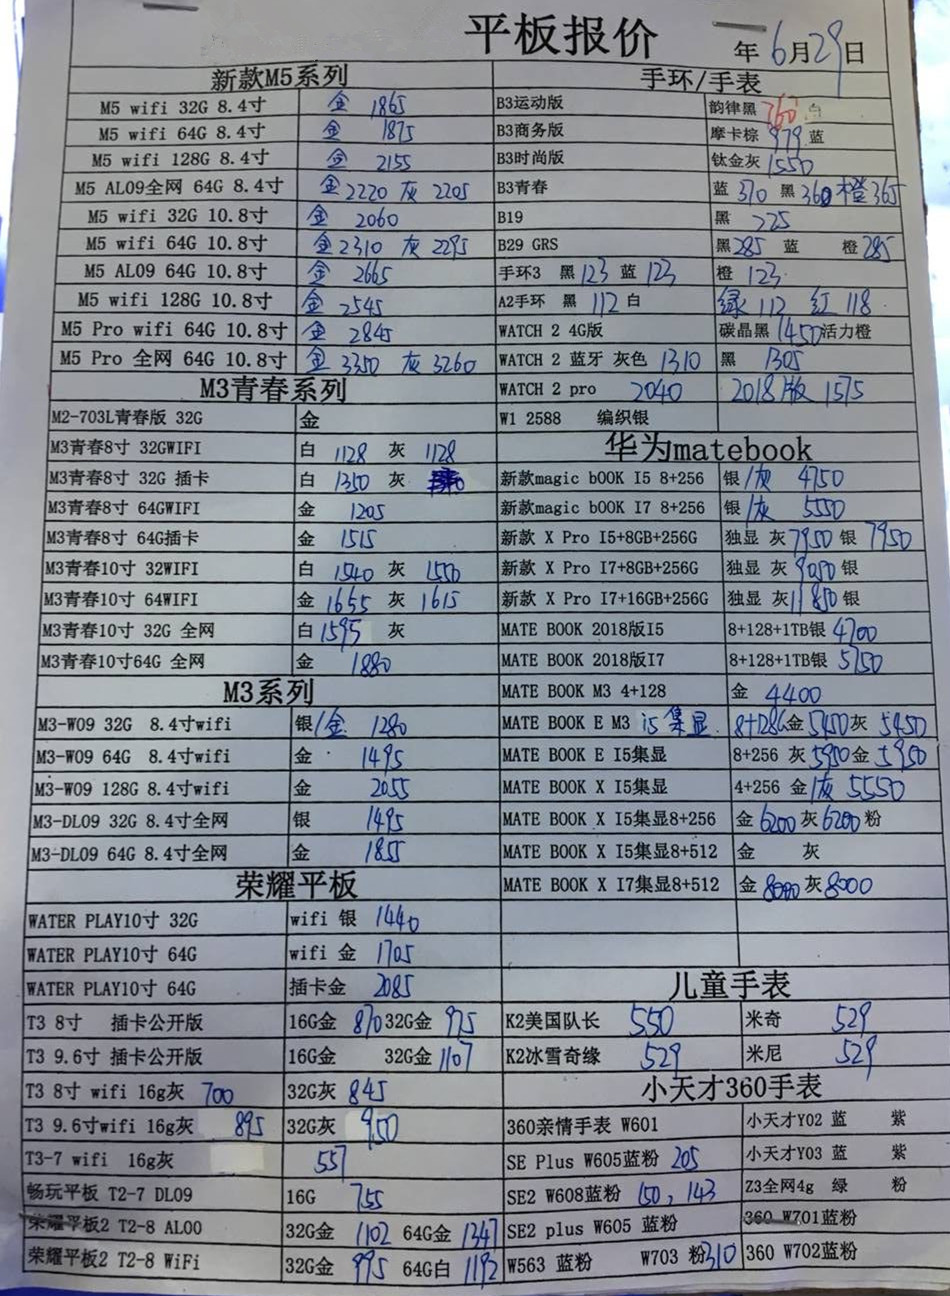 平板报价
年6月29日
新款M5系列
M5 wifi 32G 8.4寸 金 1865
M5 wifi 64G 8.4寸 金 1875
M5 wifi 128G 8.4寸 金 2155
M5 AL09全网 64G 8.4寸 金2220 灰 2205
M5 wifi 32G 10.8寸 金 2060
M5 wifi 64G 10.8寸 金2310 灰 2295
M5 AL09 64G 10.8寸 金 2665
M5 wifi 128G 10.8寸 金 2545
M5 Pro wifi 64G 10.8寸 金 2845
M5 Pro 全网 64G 10.8寸 金 3350 灰 3260
M3青春系列
M2-703L青春版 32G 金
M3青春8寸 32GWIFI 白 1128 灰 1128
M3青春8寸 32G 插卡 白 1350 灰
M3青春8寸 64GWIFI 金 1205
M3青春8寸 64G插卡 金 1515
M3青春10寸 32WIFI 白 1540 灰 1550
M3青春10寸 64WIFI 金 1655 灰 1615
M3青春10寸 32G 全网 白1595 灰
M3青春10寸64G 全网 金 1880
M3系列
M3-W09 32G 8.4寸wifi 银/金 1280
M3-W09 64G 8.4寸wifi 金 1495
M3-W09 128G 8.4寸wifi 金 2055
M3-DL09 32G 8.4寸全网 银 1495
M3-DL09 64G 8.4寸全网 金 1855
荣耀平板
WATER PLAY10寸 32G wifi 银 1440
WATER PLAY10寸 64G wifi 金 1705
WATER PLAY10寸 64G 插卡金 2085
T3 8寸 插卡公开版 16G金 870 32G金 975
T3 9.6寸 插卡公开版 16G金 32G金 1107
T3 8寸 wifi 16g灰 700 32G灰 845
T3 9.6寸wifi 16g灰 895 32G灰 950
T3-7 wifi 16g灰 557
畅玩平板 T2-7 DL09 16G 755
荣耀平板2 T2-8 AL00 32G金 1102 64G金 1347
荣耀平板2 T2-8 WiFi 32G金 995 64G白 1192
手环/手表
B3运动版 韵律黑 760 白
B3商务版 摩卡棕 979 蓝
B3时尚版 钛金灰 1550
B3青春 蓝 370 黑 360 橙 365
B19 黑 225
B29 GRS 黑285 蓝 橙 285
手环3 黑 123 蓝 123 橙 123
A2手环 黑 112 白 绿 112 红 118
WATCH 2 4G版 碳晶黑 1450 活力橙
WATCH 2 蓝牙 灰色 1310 黑 1305
WATCH 2 pro 2040 2018版 1575
W1 2588 编织银
华为matebook
新款magic bOOK I5 8+256 银/灰 4750
新款magic bOOK I7 8+256 银/灰 5550
新款 X Pro I5+8GB+256G 独显 灰7950 银 7950
新款 X Pro I7+8GB+256G 独显 灰 9050 银
新款 X Pro I7+16GB+256G 独显 灰11850 银
MATE BOOK 2018版I5 8+128+1TB银 4700
MATE BOOK 2018版I7 8+128+1TB银 5750
MATE BOOK M3 4+128 金 4400
MATE BOOK E M3 i5 集显 8+128G金 5450 灰 5450
MATE BOOK E I5集显 8+256 灰 5950 金 5950
MATE BOOK X I5集显 4+256 金/灰 5550
MATE BOOK X I5集显8+256 金 6200 灰 6200 粉
MATE BOOK X I5集显8+512 金 灰
MATE BOOK X I7集显8+512 金 8000 灰 8000
儿童手表
K2美国队长 550 米奇 529
K2冰雪奇缘 529 米尼 529
小天才360手表
360亲情手表 W601 小天才Y02 蓝 紫
SE Plus W605蓝粉 205 小天才Y03 蓝 紫
SE2 W608蓝粉 150, 143 Z3全网4g 绿 粉
SE2 plus W605 蓝粉 360 W701蓝粉
W563 蓝粉 W703 粉310 360 W702蓝粉